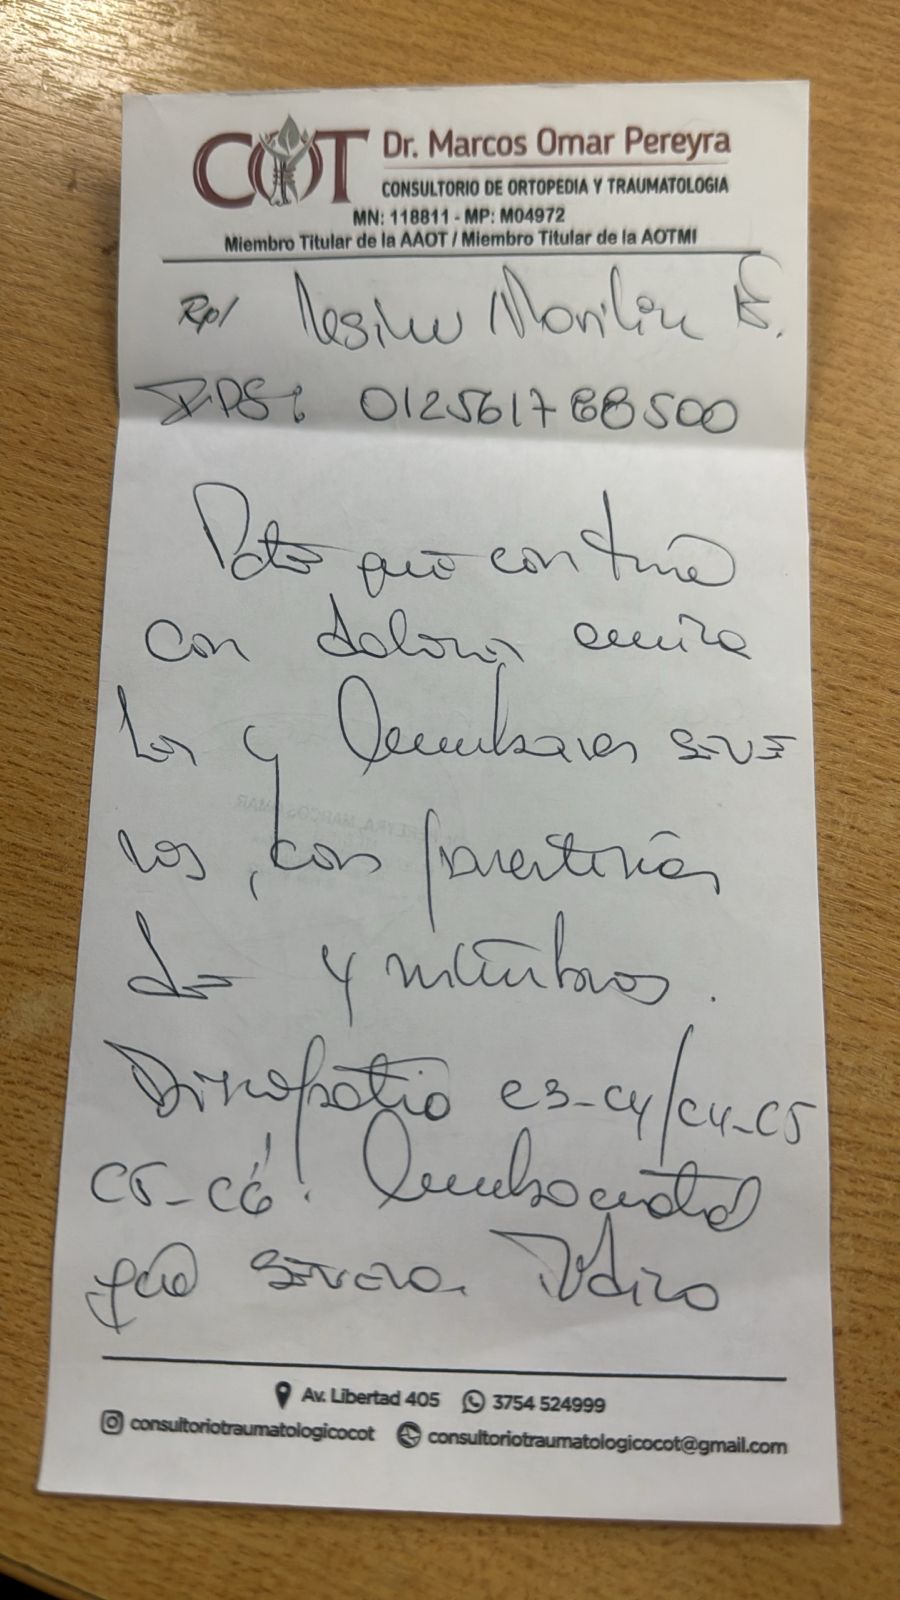 COT Dr. Marcos Omar Pereyra
CONSULTORIO DE ORTOPEDIA Y TRAUMATOLOGIA
MN: 118811 - MP: M04972
Miembro Titular de la AAOT / Miembro Titular de la AOTMI
Rp/
IPS: 012561788500
Pate que continua
con dolores cervica
les y lumbares seve
ros, con parestesias
de 4 miembros.
Discopatia C3-C4/C4-C5
C5-C6. Lumbociatal
gia severa.
Av. Libertad 405 3754 524999
consultoriotraumatologicocot consultoriotraumatologicocot@gmail.com